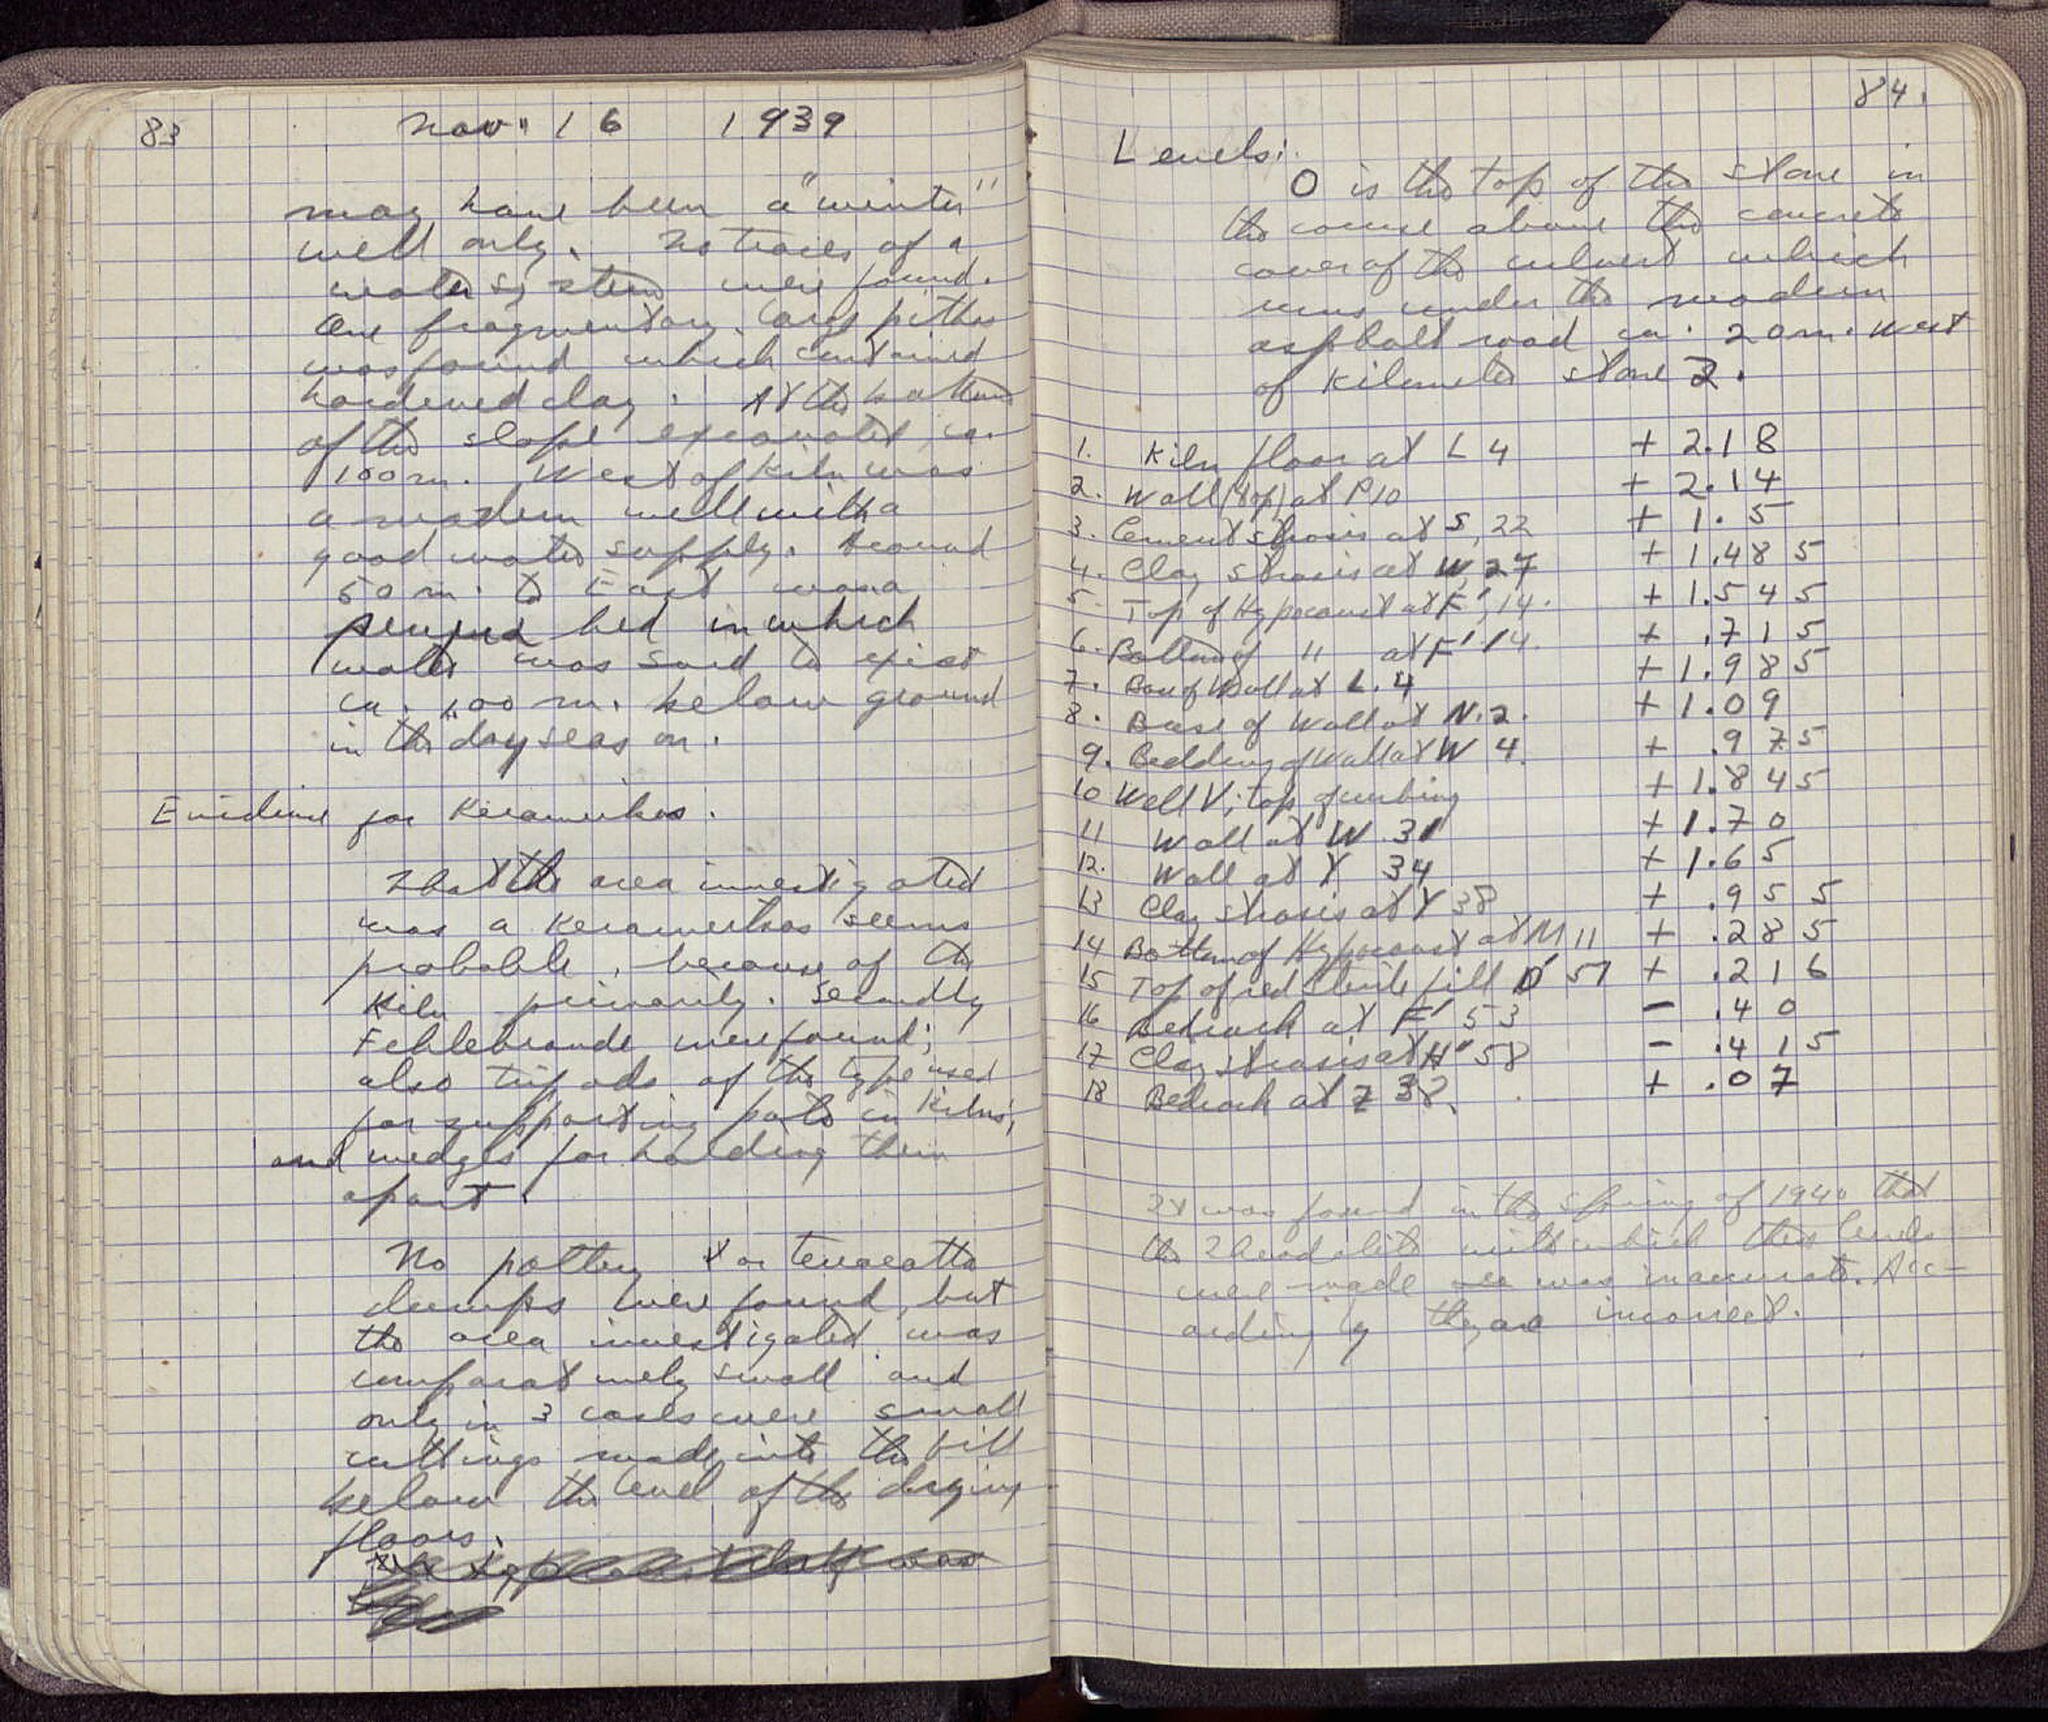 83
Nov. 16 1939
may have been a "winter"
well only. No traces of a
water system were found.
One fragmentary large pithos
was found which contained
hardened clay. At the bottom
of the slope excavated, ca.
100 m. West of Kiln was
a modern well with a
good water supply. Around
50 m. to East was a
bed in which
water was said to exist
ca. 100 m. below ground
in the dry season.
Evidence for Kerameikos.
That the area investigated
was a Kerameikos seems
probable, because of the
Kiln primarily. Secondly
Fehlebrande were found;
also tripods of the type used
for supporting pots in Kilns;
and wedges for holding them
apart.
No pottery or terracotta
dumps were found, but
the area investigated was
comparatively small and
only in 3 cases were small
cuttings made into the fill
below the level of the digging
floors.
84.
Levels:
0 is the top of the stone in
the course above the concrete
cover of the culvert which
runs under the modern
asphalt road ca. 20 m. West
of Kilometer stone 2.
1. Kiln floor at L 4 + 2.18
2. Wall (top) at P10 + 2.14
3. Cement strosis at S, 22 + 1.5
4. Clay strosis at W, 27 + 1.485
5. Top of Hypocaust at F', 14. + 1.545
6. Bottom of " at F' 14. + .715
7. Base of Wall at L. 4 + 1.985
8. Base of Wall at N. 2. + 1.09
9. Bedding of Wall at W 4. + .975
10 Well V; top of curbing + 1.845
11 Wall at W 31 + 1.70
12. Wall at Y 34 + 1.65
13 Clay strosis at Y 38 + .955
14 Bottom of Hypocaust at M 11 + .285
15 Top of red sterile fill D' 57 + .216
16 Bedrock at F' 53 - .40
17 Clay strosis at H' 58 - .415
18 Bedrock at Z 38. + .07
It was found in the Spring of 1940 that
the Theodolite with which these levels
were made was inaccurate. Acc-
ordingly they are incorrect.